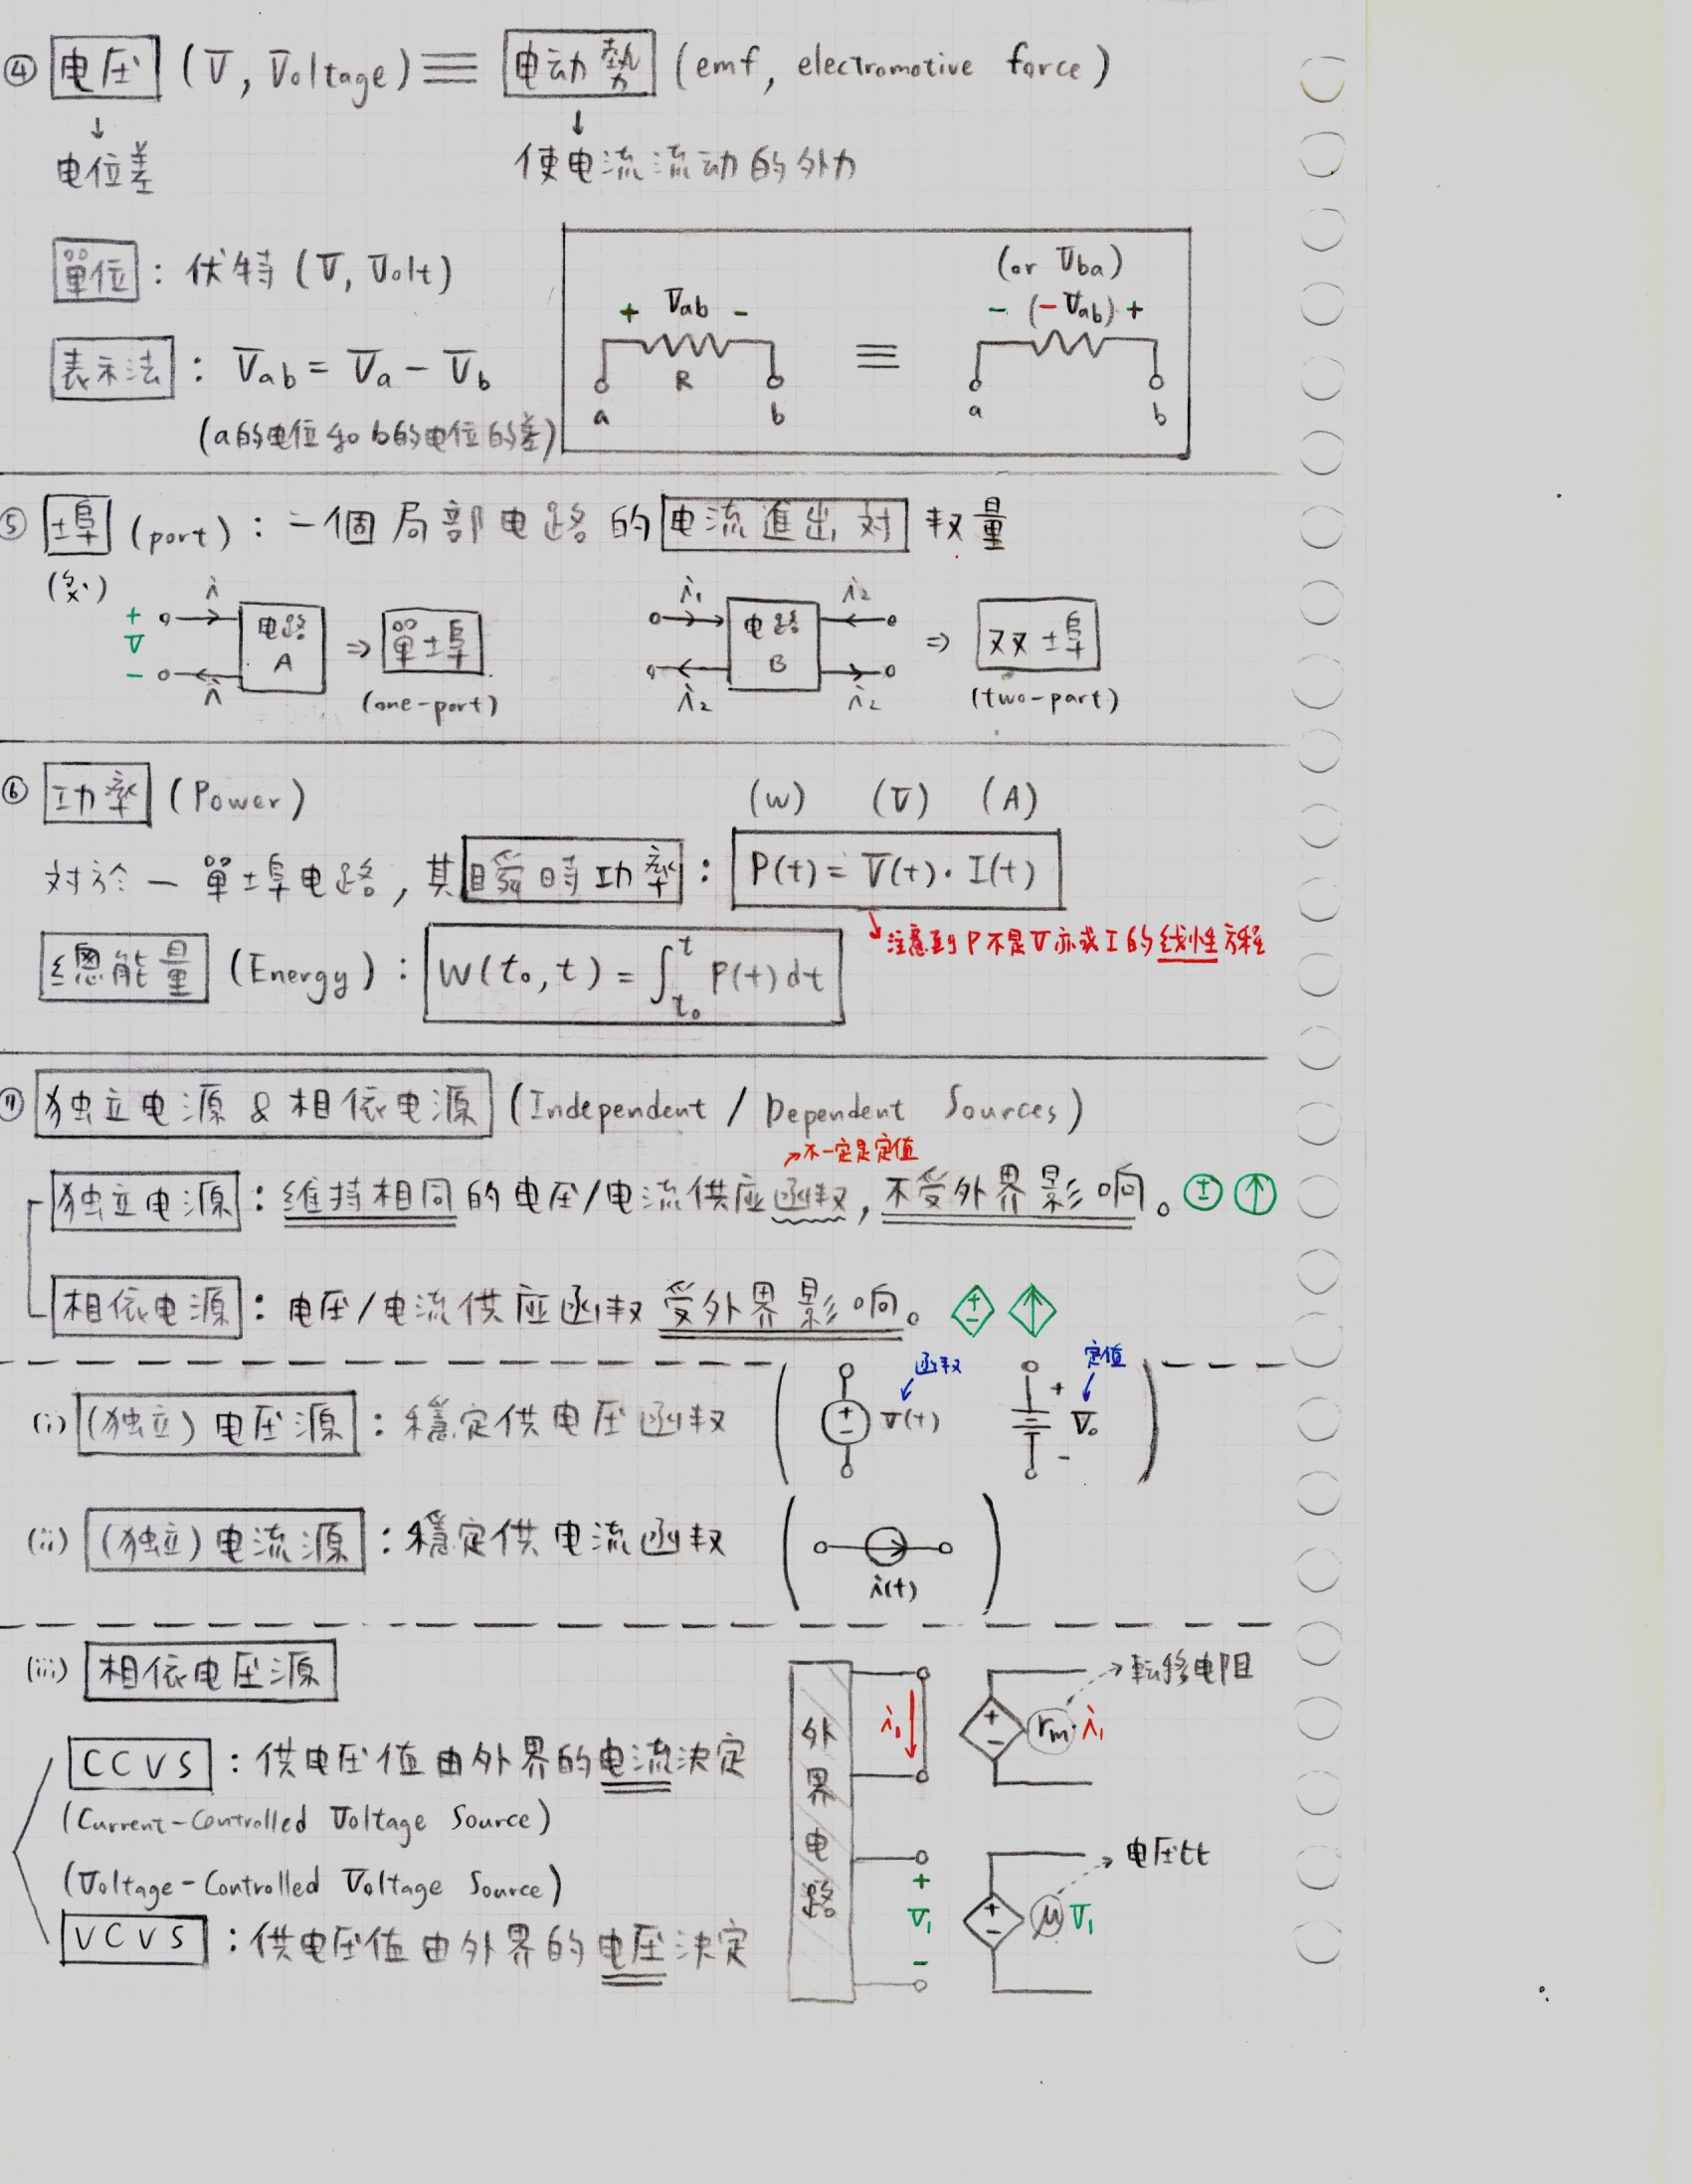 ④ 电压 (V, Voltage) ≡ 电动势 (emf, electromotive force)
↓ ↓
电位差 使电流流动的外力
單位 : 伏特 (V, Volt)
表示法 : Vab = Va - Vb
(a的电位和b的电位的差)
+ Vab -
R
a b
≡
(or Vba)
- (-Vab) +
a b
⑤ 埠 (port) : 一個局部电路的电流進出对数量
(例)
+ V -
i
i
电路 A
⇒ 單埠
(one-port)
i₁ i₂
电路 B
i₂ i₂
⇒ 双埠
(two-port)
⑥ 功率 (Power)
(W) (V) (A)
对於一單埠电路, 其瞬時功率 : P(t) = V(t)· I(t)
注意到 P 不是 V 亦或 I 的线性方程
總能量 (Energy) : W(t₀, t) = ∫ₜ₀ᵗ P(t) dt
独立电源 & 相依电源 (Independent / Dependent Sources)
→不一定是定值
独立电源 : 维持相同的电压/电流供应函数, 不受外界影响。
相依电源 : 电压/电流供应函数受外界影响。
(i) (独立) 电压源 : 穩定供电压函数
函数
+ - V(t)
定值
+ V₀ -
(ii) (独立) 电流源 : 穩定供电流函数
i(t)
(iii) 相依电压源
CCVS : 供电压值由外界的电流决定
(Current-Controlled Voltage Source)
(Voltage-Controlled Voltage Source)
VCVS : 供电压值由外界的电压决定
外界电路
i₁
+ - rm·i₁
→転移电阻
+ V₁ -
+ - μ V₁
→电压比